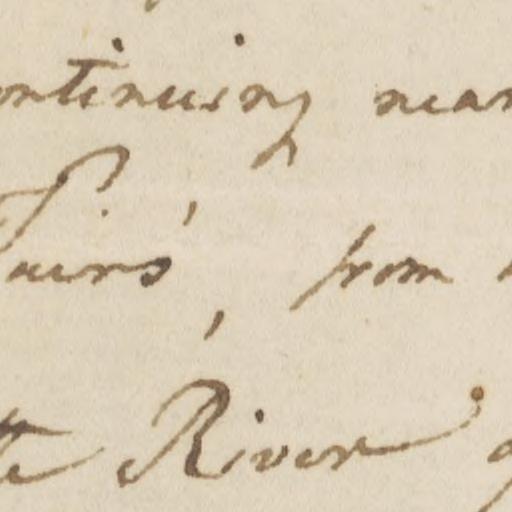 ontinuing near
Pairs', from
te River